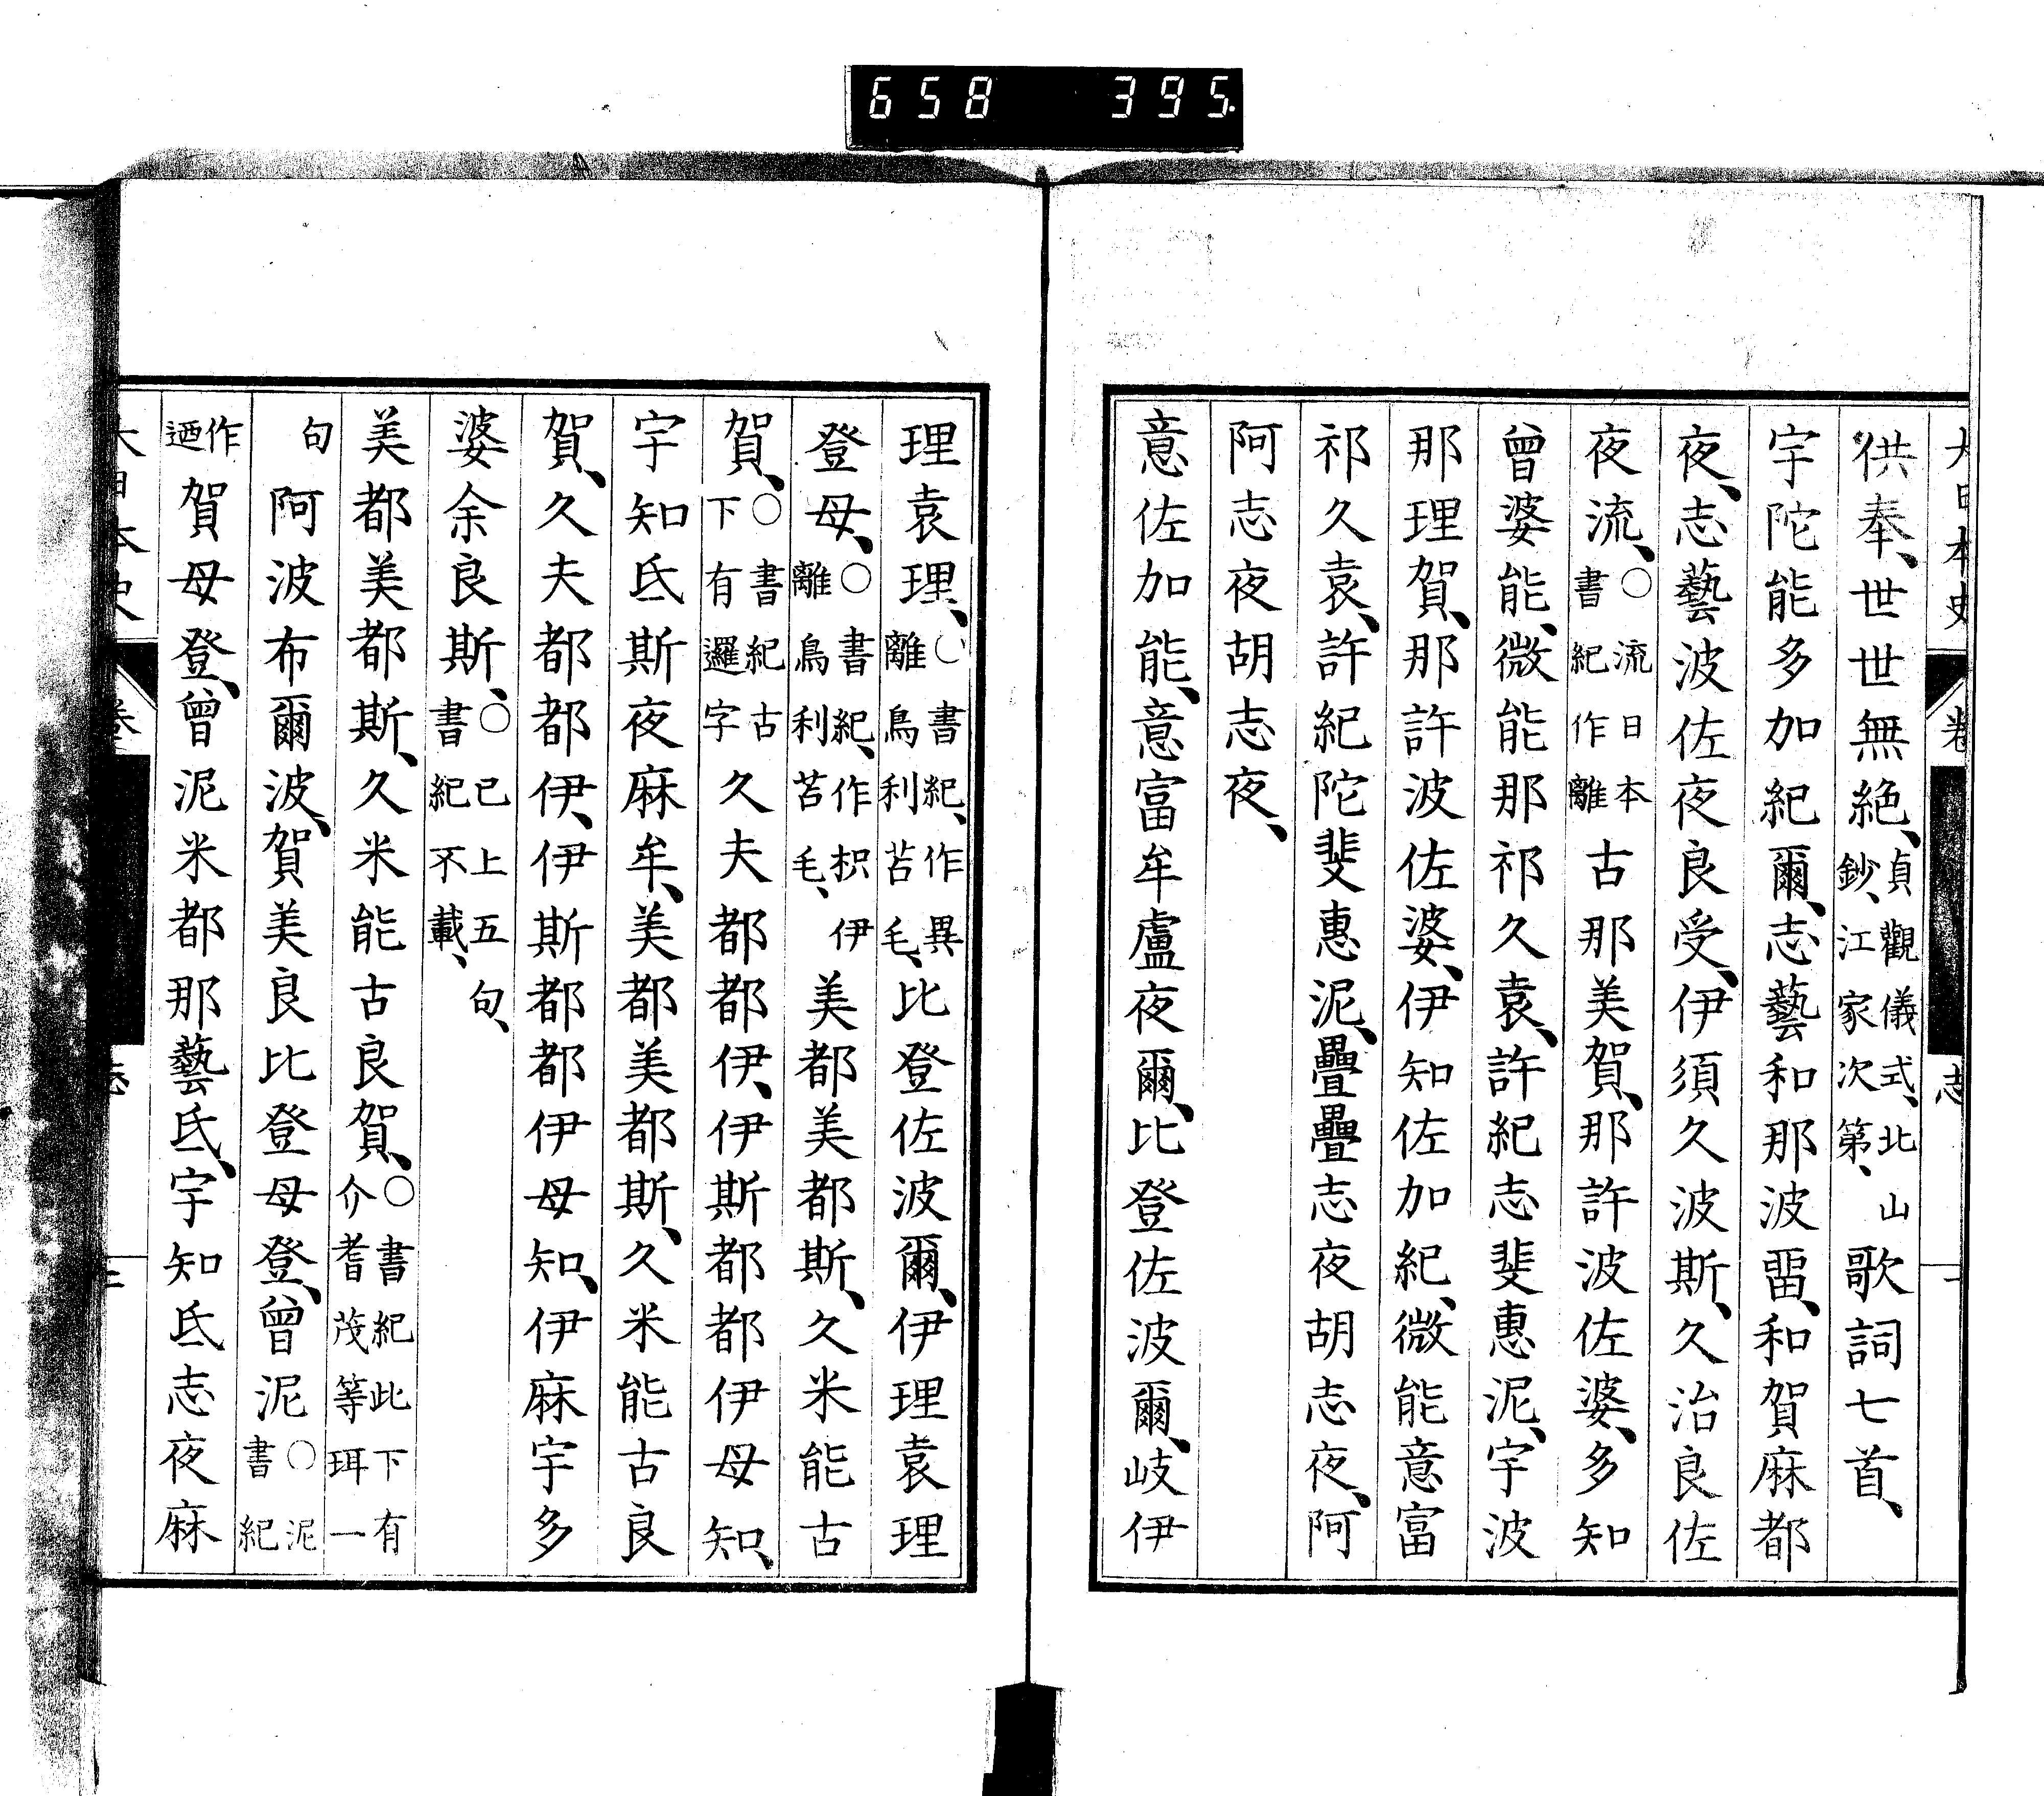 658 395
大日本史 卷 志
供奉、世世無絶、貞觀儀式、北山鈔、江家次第、歌詞七首、
宇陀能多加紀爾、志藝和那波畱、和賀麻都
夜、志藝波佐夜良受、伊須久波斯、久治良佐
夜流、○流日本書紀作離古那美賀、那許波佐婆、多知
曾婆能、微能那祁久袁、許紀志斐惠泥、宇波
那理賀、那許波佐婆、伊知佐加紀、微能意富
祁久袁、許紀陀斐惠泥、疊疊志夜胡志夜、阿
阿志夜胡志夜、
意佐加能、意富牟盧夜爾、比登佐波爾、岐伊
理袁理、○書紀、作異離烏利苔毛、比登佐波爾、伊理袁理
登母、○書紀、作枳伊離烏利苔毛、美都美都斯、久米能古
賀、○書紀古下有邏字久夫都都伊、伊斯都都伊母知、
宇知氐斯夜麻牟、美都美都斯、久米能古良
賀、久夫都都伊、伊斯都都伊母知、伊麻宇多
婆余良斯、○已上五句、書紀不載、
美都美都斯、久米能古良賀、○書紀此下有介耆茂等珥一
句阿波布爾波、賀美良比登母登、曾泥○泥書紀
作迺賀母登、曾泥米都那藝氐、宇知氐志夜麻
大日本史 卷 志